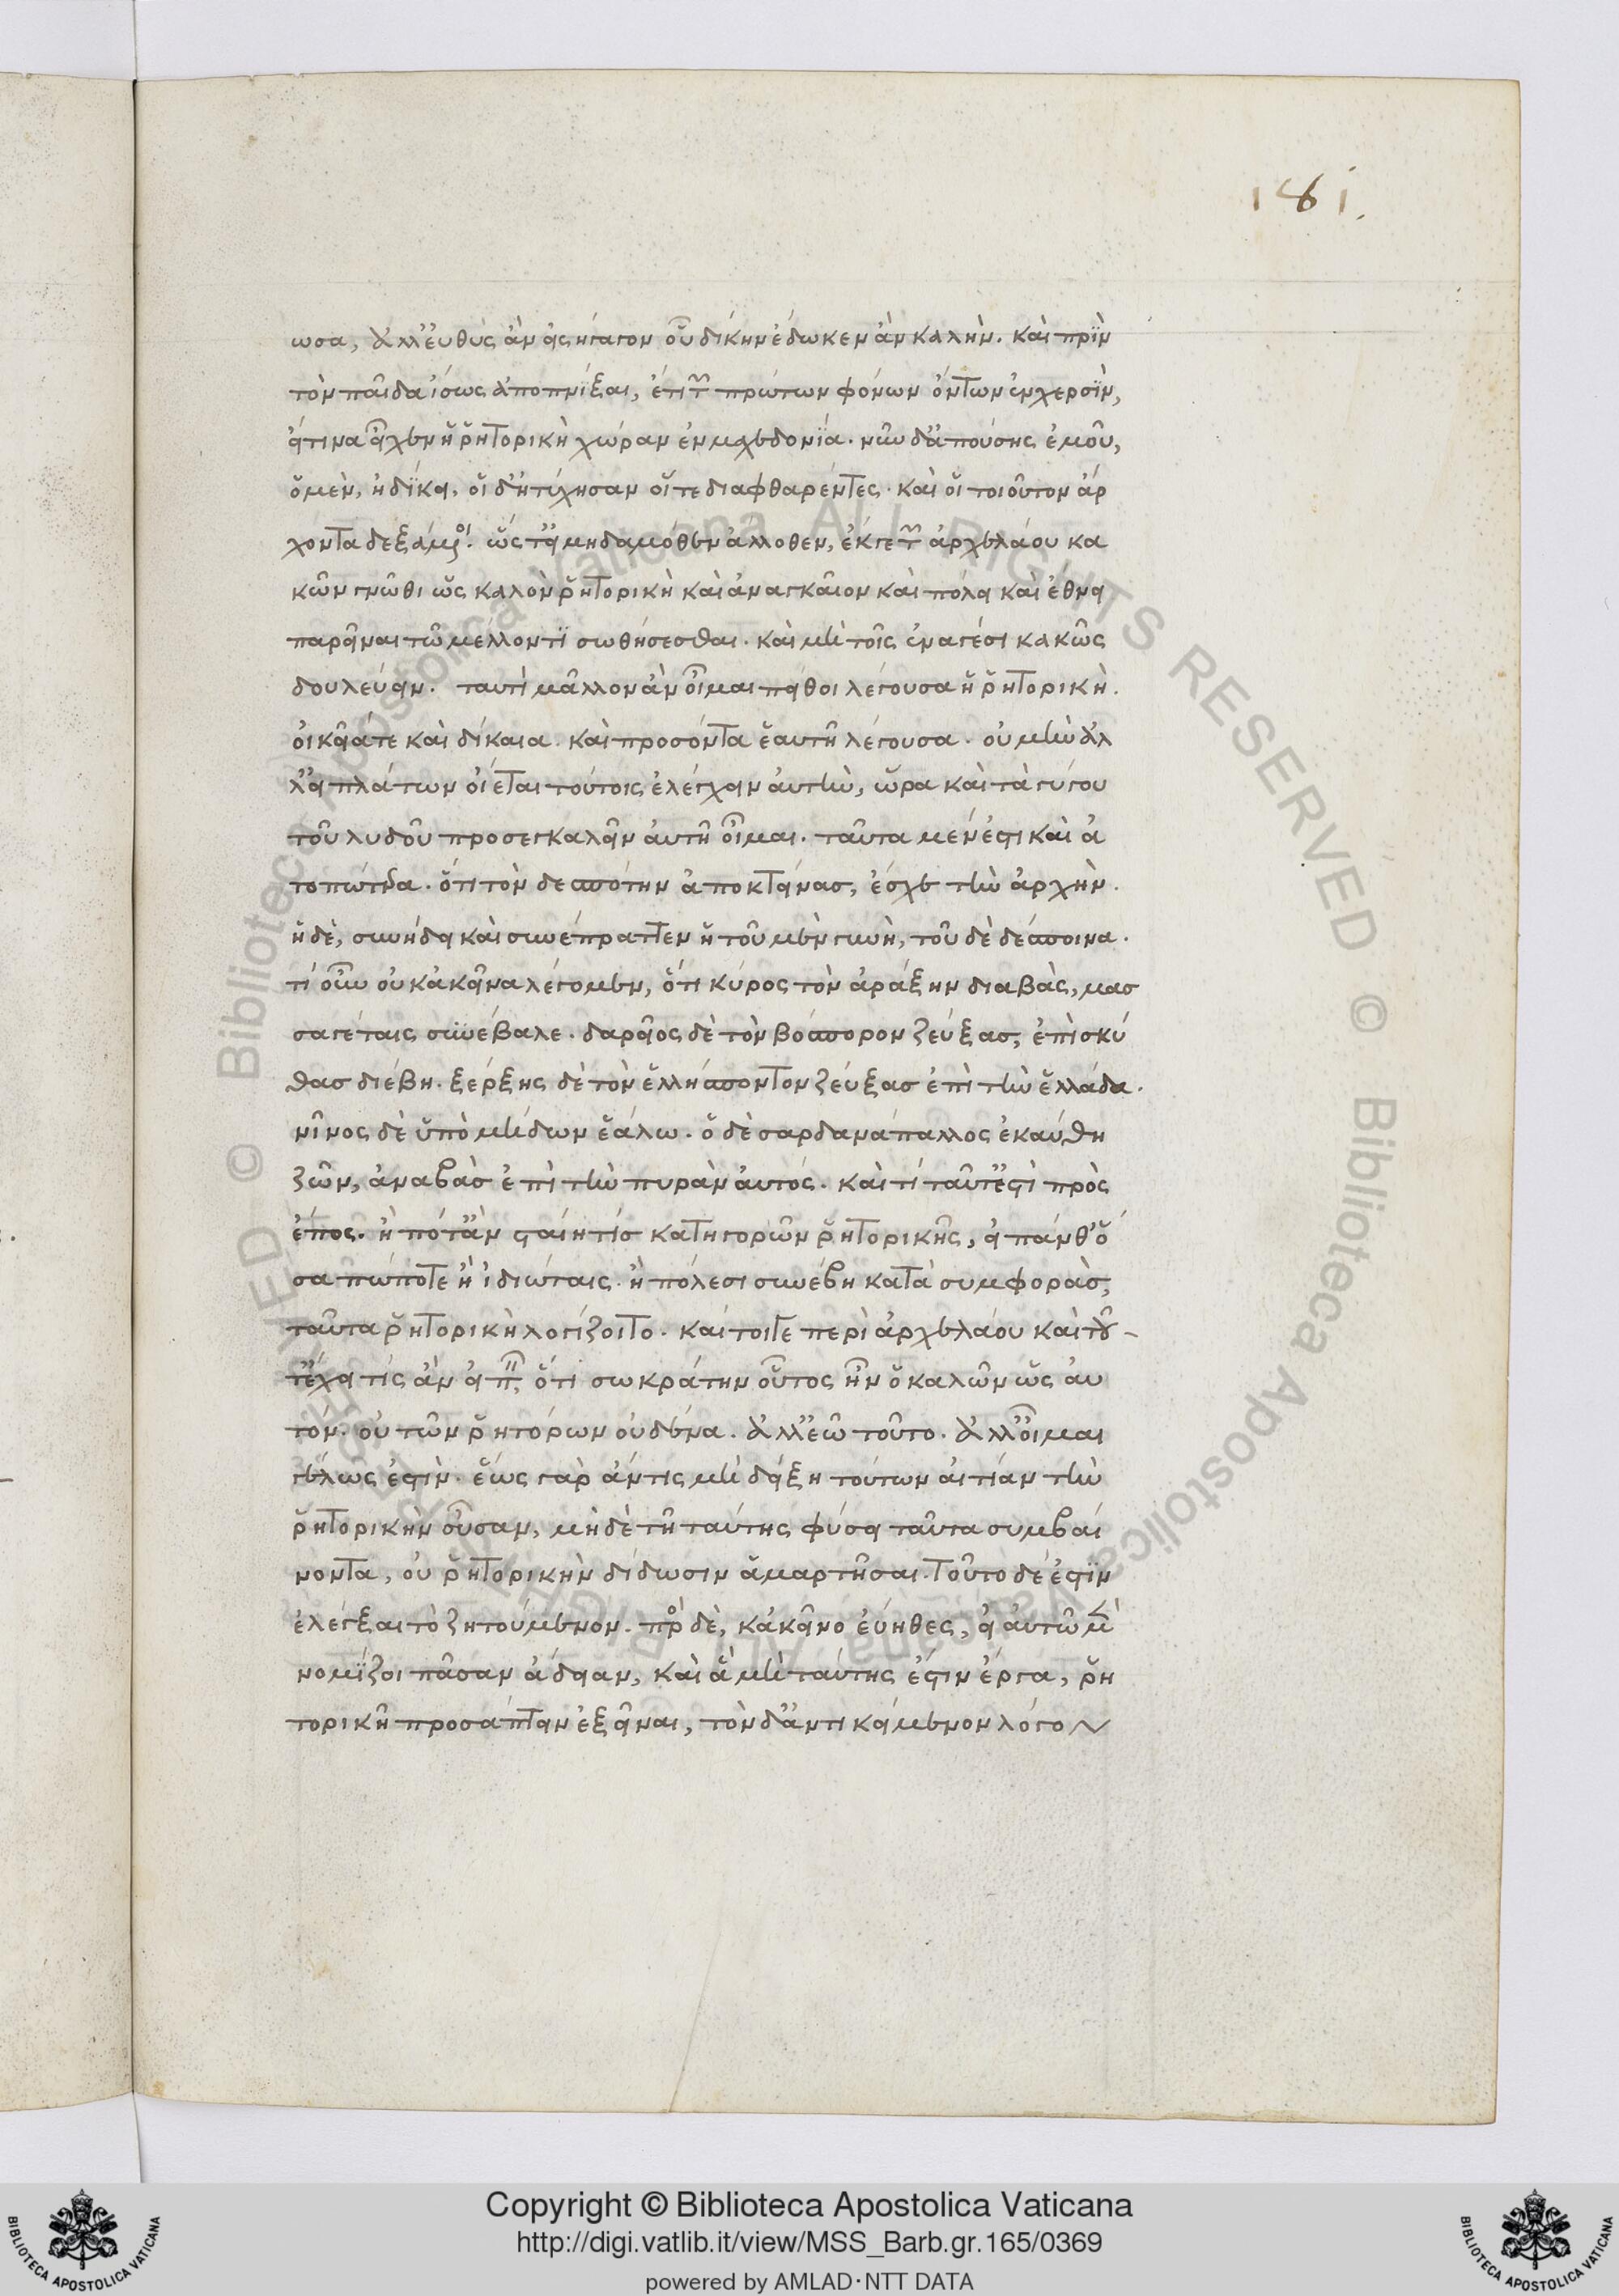 181.
ωσα, ἀλλ' εὐθὺς ἂν εἰσήγαγον οὗ δίκην ἔδωκεν ἂν καλὴν. καὶ πρὶν
τὸν παῖδα ἴσως ἀποπνίξαι, ἔτι τῶν πρώτων φόνων ὄντων ἐν χερσὶν,
εἴ τινα εἶχεν ἡ ῥητορικὴ χώραν ἐν μακεδονία. νῦν δ' ἀπούσης ἐμοῦ,
ὁ μὲν, ἠδίκει. οἱ δ' ἠτύχησαν οἵ τε διαφθαρέντες. καὶ οἱ τοιοῦτον ἄρ
χοντα δεξάμενοι. ὥστ' εἰ μηδαμόθεν ἄλλοθεν, ἔκ γε τῶν ἀρχελάου κα
κῶν γνῶθι ὡς καλὸν ῥητορικὴ καὶ ἀναγκαῖον καὶ πόλει καὶ ἔθνει
παρεῖναι τῶ μέλλοντι σωθήσεσθαι. καὶ μὴ τοῖς ἐναγέσι κακῶς
δουλεύειν. ταυτὶ μᾶλλον ἂν οἶμαι πείθοι λέγουσα ἡ ῥητορικὴ.
οἰκεῖά τε καὶ δίκαια. καὶ προσόντα ἑαυτῆ λέγουσα. οὐ μὴν ἀλ
λ' εἰ πλάτων οἴεται τούτοις ἐλέγχειν αὐτὴν, ὥρα καὶ τὰ γύγου
τοῦ λυδοῦ προσεγκαλεῖν αὐτῆ οἶμαι. ταῦτα μέν ἐστι καὶ ἀ
τοπώτερα. ὅτι τὸν δεσπότην ἀποκτείνας, ἔσχε τὴν ἀρχὴν.
ἡ δὲ, συνήδει καὶ συνέπραττεν ἡ τοῦ μὲν γυνὴ, τοῦ δὲ δέσποινα.
τί οὖν οὐκ ἀκεῖνα λέγομεν, ὅτι κύρος τὸν ἀράξην διαβὰς, μασ
σαγέταις συνέβαλε. δαρεῖος δὲ τὸν βόσπορον ζεύξας, ἐπὶ σκύ
θας διέβη. ξέρξης δὲ τὸν ἑλλήσποντον ζεύξας ἐπὶ τὴν ἑλλάδα.
νῖνος δὲ ὑπὸ μήδων ἑάλω. ὁ δὲ σαρδανάπαλλος ἐκαύθη
ζῶν, ἀναβὰς ἐπὶ τὴν πυρὰν αὐτός. καὶ τί ταῦτ' ἐστὶ πρὸς
ἔπος. ἢ πότ' ἂν σταίη τίς κατηγορῶν ῥητορικῆς, εἰ πάνθ' ὅ
σα πώποτε ἢ ἰδιώταις. ἢ πόλεσι συνέβη κατὰ συμφορὰς,
ταῦτα ῥητορικὴ λογίζοιτο. καίτοιγε περὶ ἀρχελάου καὶ τοῦ
τ' ἔχει τίς ἂν εἰπεῖν, ὅτι σωκράτην οὗτος ἦν ὁ καλῶν ὡς αὑ
τόν. οὐ τῶν ῥητόρων οὐδένα. ἀλλ' ἐῶ τοῦτο. ἀλλ' οἶμαι
γέλως ἐστὶν. ἕως γὰρ ἄν τις μὴ δείξη τούτων αἰτίαν τὴν
ῥητορικὴν οὖσαν, μὴ δὲ τῆ ταύτης φύσει ταῦτα συμβαί
νοντα, οὐ ῥητορικὴν δίδωσιν ἁμαρτῆσαι. τοῦτο δέ ἐστὶν
ἐλέγξαι τὸ ζητούμενον. πρὸς δὲ, κἀκεῖνο εὔηθες, εἰ αὑτῶ μὲν
νομίζοι πᾶσαν ἄδειαν, καὶ ἃ μὴ ταύτης ἐστὶν ἔργα, ῥη
τορικῆ προσάπτειν ἐξεῖναι, τὸν δ' ἀντικείμενον λόγον
Copyright © Biblioteca Apostolica Vaticana
http://digi.vatlib.it/view/MSS_Barb.gr.165/0369
powered by AMLAD·NTT DATA